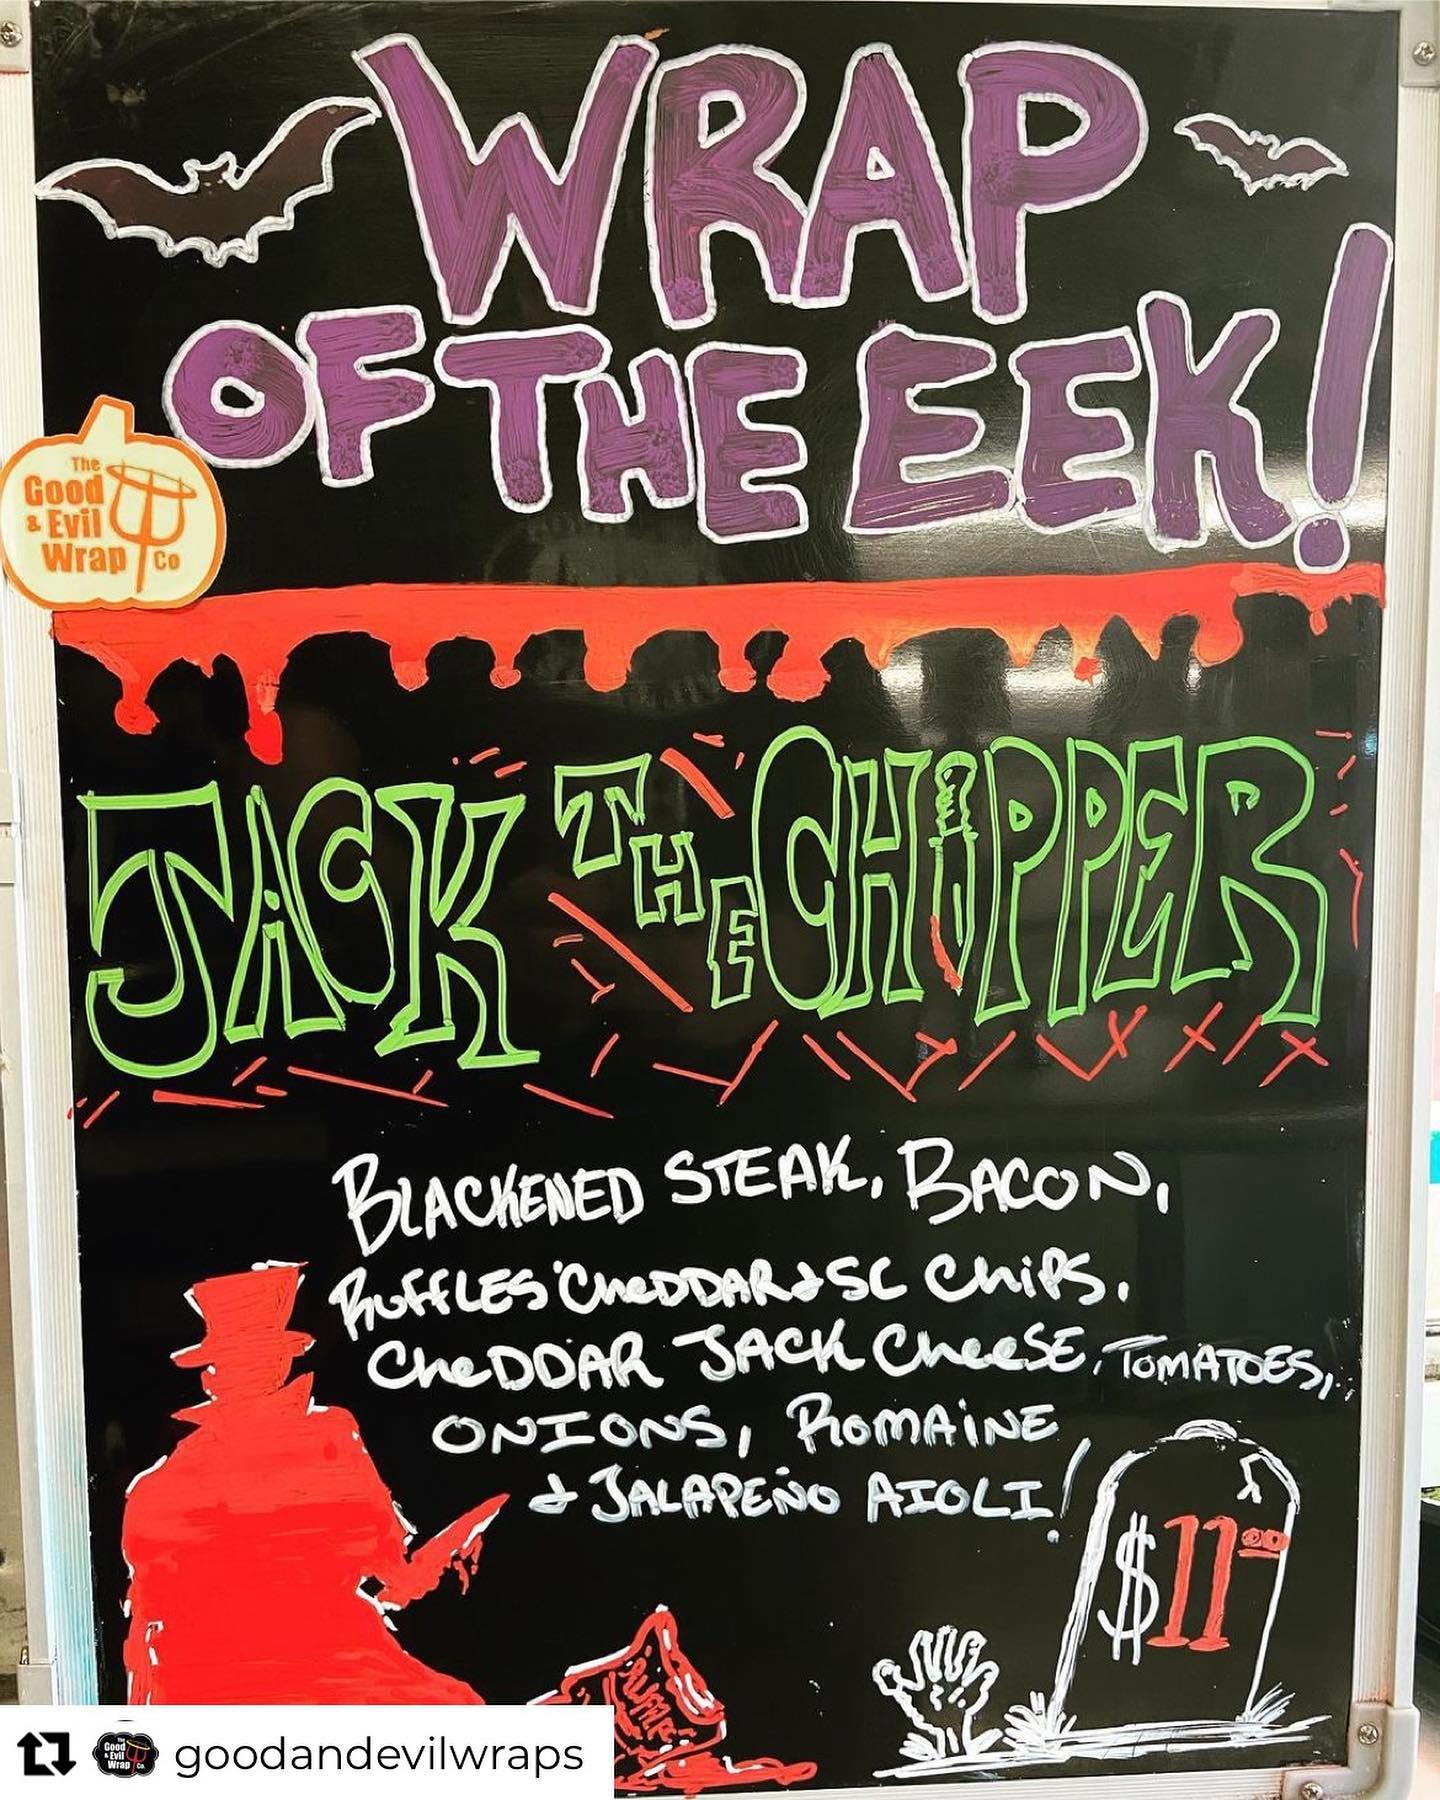 WRAP
OF THE EEK!
The
Good
& Evil
Wrap Co
JACK THE CHIPPER
BLACKENED STEAK, BACON,
RUFFLES CHEDDAR & SC CHIPS,
CHEDDAR JACK CHEESE, TOMATOES,
ONIONS, ROMAINE
& JALAPEÑO AIOLI!
$11.00
The
Good
& Evil
Wrap Co.
goodandevilwraps